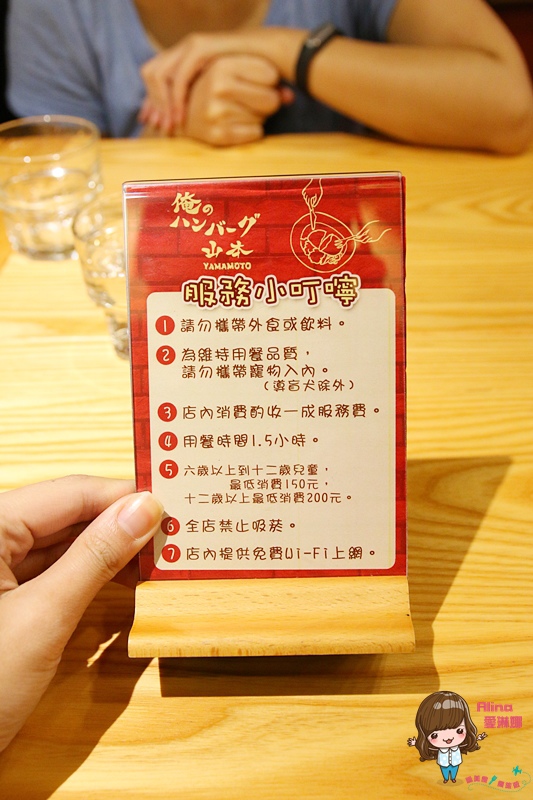 俺の
ハンバーグ
山本
YAMAMOTO
服務小叮嚀
1 請勿攜帶外食或飲料。
2 為維持用餐品質，
請勿攜帶寵物入內。
（導盲犬除外）
3 店內消費酌收一成服務費。
4 用餐時間1.5小時。
5 六歲以上到十二歲兒童，
最低消費150元，
十二歲以上最低消費200元。
6 全店禁止吸菸。
7 店內提供免費Wi-Fi上網。
Alina
愛琳娜